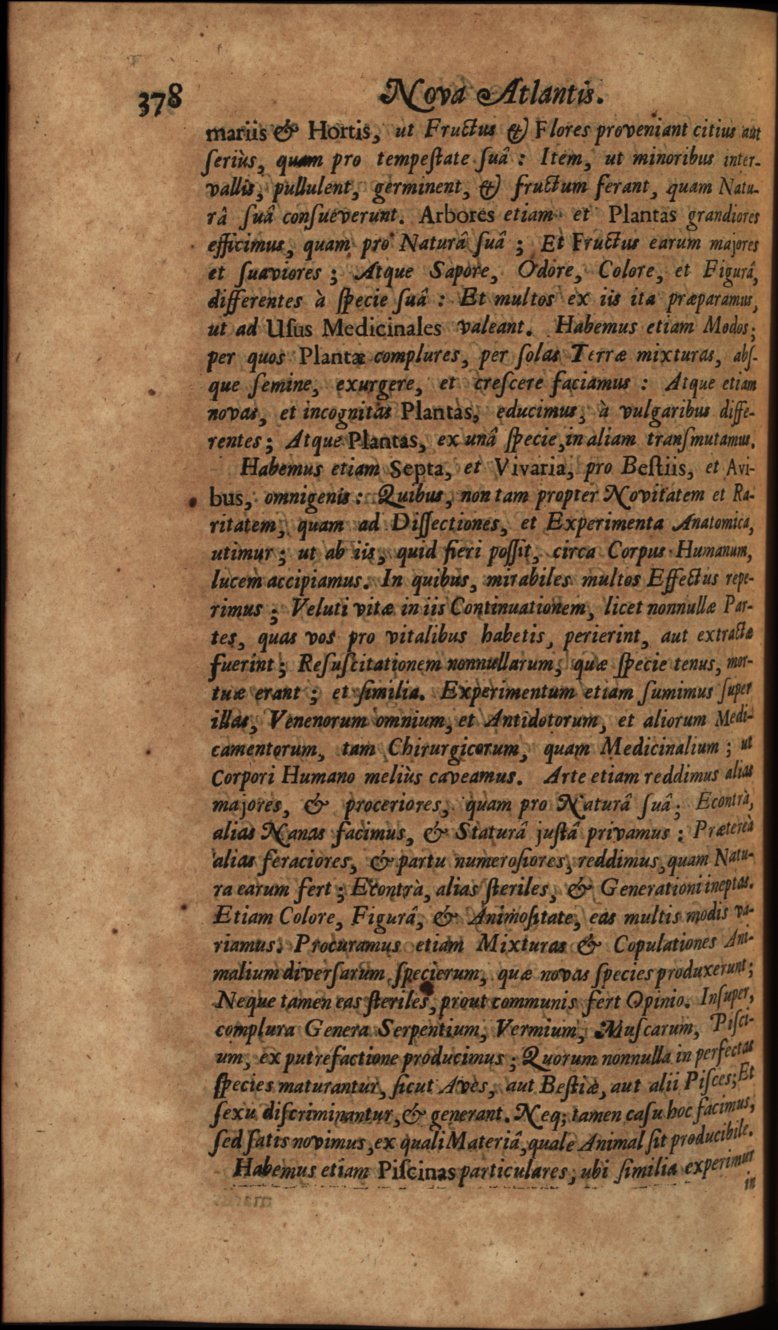 378 Nova Atlantis.
mariis & Hortis, ut Fructus & Flores proveniant citius aut
seriùs, quam pro tempestate suâ : Item, ut minoribus inter-
vallis, pullulent, germinent, & fructum ferant, quam Natu-
râ suâ consueverunt. Arbores etiam et Plantas grandiores
efficimus, quam pro Naturâ suâ ; Et Fructus earum majores
et suaviores ; Atque Sapore, Odore, Colore, et Figurâ,
differentes à specie suâ : Et multos ex iis ita præparamus,
ut ad Usus Medicinales valeant. Habemus etiam Modos;
per quos Plantæ complures, per solas Terræ mixturas, abs-
que semine, exurgere, et crescere faciamus : Atque etiam
novas, et incognitas Plantas, educimus, à vulgaribus diffe-
rentes ; Atque Plantas, ex unâ specie, in aliam transmutamus.
Habemus etiam Septa, et Vivaria, pro Bestiis, et Avi-
bus, omnigenis : Quibus, non tam propter Novitatem et Ra-
ritatem, quam ad Dissectiones, et Experimenta Anatomica,
utimur ; ut ab iis, quid fieri possit, circa Corpus Humanum,
lucem accipiamus. In quibus, mirabiles multos Effectus repe-
rimus ; Veluti vitæ in iis Continuationem, licet nonnullæ Par-
tes, quas vos pro vitalibus habetis, perierint, aut extractæ
fuerint ; Resuscitationem nonnullarum, quæ specie tenus, mor-
tuæ erant ; et similia. Experimentum etiam sumimus super
illas, Venenorum omnium, et Antidotorum, et aliorum Medi-
camentorum, tam Chirurgicorum, quam Medicinalium ; ut
Corpori Humano meliùs caveamus. Arte etiam reddimus alias
majores, & proceriores, quam pro Naturâ suâ; Econtrà,
alias Nanas facimus, & Staturâ justâ privamus : Prætereà
alias feraciores, & partu numerosiores, reddimus, quam Natu-
ra earum fert ; Econtrà, alias steriles, & Generationi ineptas.
Etiam Colore, Figurâ, & Animositate, eas multis modis va-
riamus. Procuramus etiam Mixturas & Copulationes Ani-
malium diversarum specierum, quæ novas species produxerunt;
Neque tamen eas steriles, prout communis fert Opinio. Insuper,
complura Genera Serpentium, Vermium, Muscarum, Pisci-
um, ex putrefactione producimus ; Quorum nonnulla in perfectas
species maturantur, sicut Aves, aut Bestiæ, aut alii Pisces; Et
sexu discriminantur, & generant. Neq; tamen casu hoc facimus,
sed satis novimus, ex quali Materiâ, quale Animal sit producibile.
Habemus etiam Piscinas particulares, ubi similia experimur
in